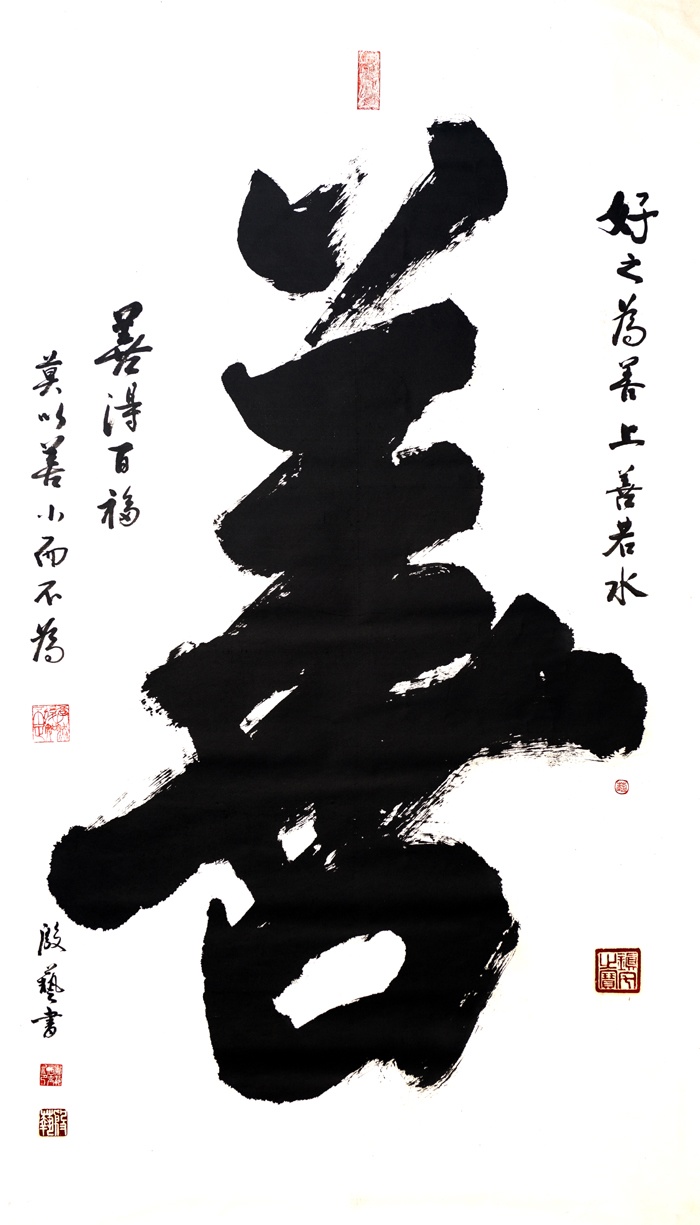 善
好之為善上善若水
善得百福
莫以善小而不為
殷藝書
殷藝